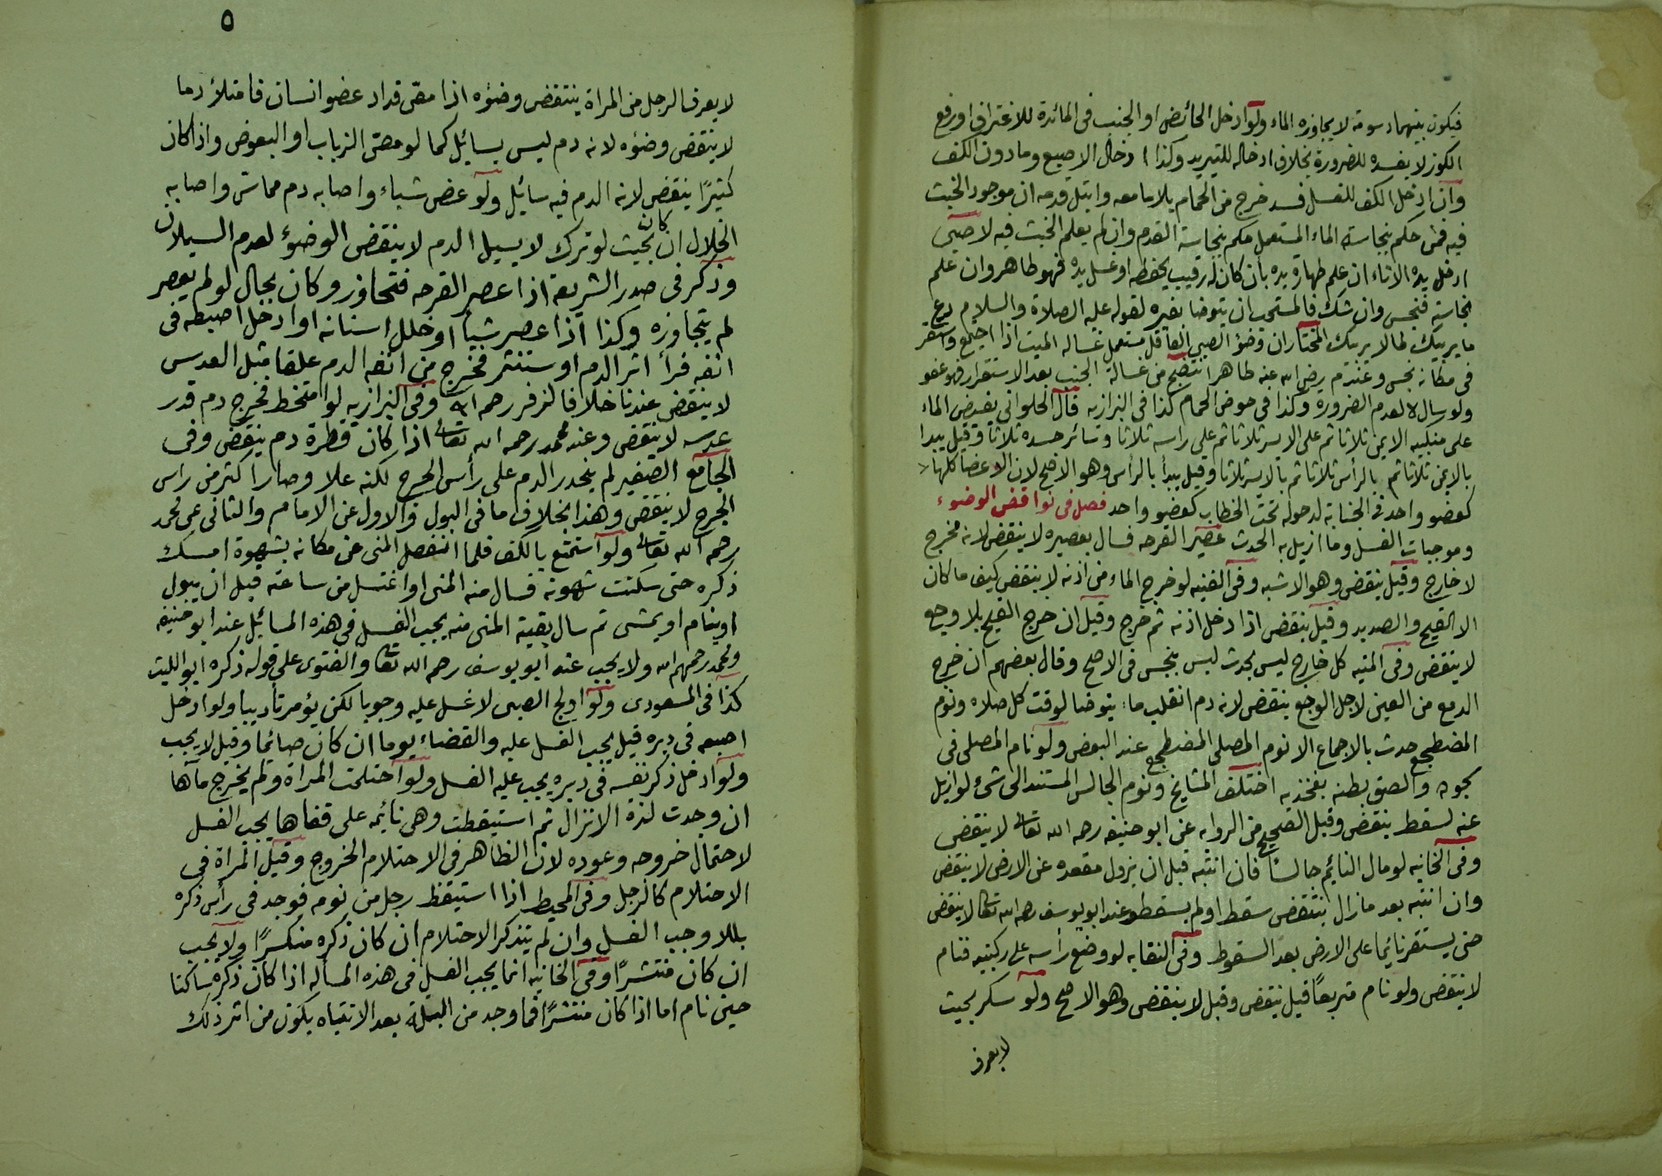 فيكون بينهما دسومة لا يجاوزه الماء ولو ادخل الحائض او الجنب فى المائدة للاغتراف او رفع
الكوز لا يفسده للضرورة بخلاف ادخاله للتبريد وكذا ادخال الاصبع وما دون الكف
وان ادخل الكف للغسل فسد خرج من الحمام بلا مامعه وابتل قدمه ان موجود الخبث
فيه فمن حكم بنجاسة الماء المستعمل حكم بنجاسة القدم وان لم يعلم الخبث فيه لا صبى
ادخل يده الاناء ان علم طهارة يده بان كان له رقيب يحفظه او غسل يده فهو طاهر وان علم
نجاسته فنجس وان شك فالمستحب ان يتوضا بغيره لقوله عليه الصلاة والسلام دع
ما يريبك لما لا يريبك المختار ان وضؤ الصبى العاقل مستعمل غساله الميت اذا اجتمع واستقر
فى مكانه نجس وعندم رضى الله عنه طاهر انتضح من غسالة الجنب بعد الاستقرار فهو عفو
ولو سال لا لعدم الضرورة وكذا فى حوض الحمام كذا فى البزازيه قال الحلوانى يفيض الماء
على منكبيه الايمن ثلاثا ثم على الايسر ثلاثا ثم على راسه ثلاثا وسائر جسده ثلاثا وقيل يبدا
بالايمن ثلاثا ثم بالرأس ثلاثا ثم بالايسر ثلاثا وقيل يبدا بالرأس وهو الاصح لان الاعضا كلها
كعضو واحد فى الجنابة لدخوله تحت الخطاب كعضو واحد فصل فى نواقض الوضوء
وموجبات الغسل وما ازيل به الحدث عصر القرحه فسال بعصيره لا ينتقض لانه مخرج
لا خارج وقيل ينتقض وهو الاشبه وفى القنيه لو خرج الماء من اذنه لا ينتقض كيف ما كان
الا القيح والصديد وقيل ينتقض اذا دخل اذنه ثم خرج وقيل ان خرج القيح بلا وجع
لا ينتقض وفى المنيه كل خارج ليس بحدث ليس بنجس فى الاصح وقال بعضهم ان خرج
الدمع من العين لاجل الوجع ينتقض لانه دم انقلب ماء يتوضا لوقت كل صلاه ونوم
المضطجع حدث بالاجماع الا نوم المصلى المضطجع عند البعض ولو نام المصلى فى
سجوده والصق بطنه بفخذيه اختلف المشايخ ونوم الجالس المستند الى شئ لو ازيل
عنه لسقط ينتقض وقيل الصحيح من الروايه عن ابو حنيفه رحمه الله تعالى لا ينتقض
وفى الخانيه لو مال النايم جالسًا فان انتبه قبل ان يزول مقعده عن الارض لا ينتقض
وان انتبه بعد ما زال ينتقض سقط او لم يسقط وعند ابو يوسف رحمه الله تعالى لا ينتقض
حتى يستقر نايما على الارض بعد السقوط وفى النقايه لو وضع رأسه على ركبتيه فنام
لا ينتقض ولو نام متربعًا قيل ينتقض وقيل لا ينتقض وهو الاصح ولو سكر بحيث
لا يعرف
٥
لا يعرف الرجل من المراة ينتقض وضؤه اذا مصّ قداد عضو انسان فامتلأ دما
لا ينتقض وضؤه لانه دم ليس بسايل كما لو مصّ الذباب او البعوض واذا كان
كثيرًا ينتقض لانه الدم فيه سايل ولو عض شياء واصابه دم مما مس واصابه
الخلال ان كان بحيث لو ترك لا يسيل الدم لا ينتقض الوضؤ لعدم السيلان
وذكر فى صدر الشريعة اذا عصر القرحه فتجاوز وكان بحال لو لم يعصر
لم يتجاوزه وكذا اذا عصر شيأ او خلل اسنانه او ادخل اصبعه فى
انفه فرأ اثر الدم او ستنثر فخرج من انفه الدم علقا مثل العدس
لا ينتقض عندنا خلافا لزفر رحمه الله وفى البزازيه لو امتخط فخرج دم قدر
عدسه لا ينتقض وعند محمد رحمه الله تعالى اذا كان قطرة دم ينتقض وفى
الجامع الصغير لم ينحدر الدم على رأس الجرح لكنه علا وصار اكثر من راس
الجرح لا ينتقض وهذا بخلاف ما فى البول والاول عن الامام والثانى عن محمد
رحمه الله تعالى ولو استمتع بالكف فلما انفصل المنى عن مكانه بشهوة امسك
ذكره حتى سكنت شهوته فسال منه المنى او اغتسل من ساعته قبل ان يبول
او ينام او يمشى ثم سال بقية المنى منه يجب الغسل فى هذه المسائل عند ابو حنيفه
ومحمد رحمهم الله ولا يجب عند ابو يوسف رحمه الله تعالى والفتوى على قوله ذكره ابو الليث
كذا فى المسعودى ولو اولج الصبى لا غسل عليه وجوبا لكن يؤمر تأديبا ولو ادخل
اصبعه فى دبره قيل يجب الغسل عليه والقضاء يوما ان كان صائما وقيل لا يجب
ولو ادخل ذكر نفسه فى دبره يجب عليه الغسل ولو احتلمت المراة ولم يخرج مآها
ان وجدت لذة الانزال ثم استيقظت وهى نايمه على قفاها يجب الغسل
لاحتمال خروجه وعوده لان الظاهر فى الاحتلام الخروج وقيل المراة فى
الاحتلام كالرجل وفى المحيط اذا استيقظ رجل من نومه فوجد فى رأس ذكره
بللا وجب الغسل وان لم يتذكر الاحتلام ان كان ذكره منكسرًا ولا يجب
ان كان منتشرًا وفى الخانيه انما يجب الغسل فى هذه المسأله اذا كان ذكره ساكنا
حين نام اما اذا كان منتشرًا فما وجد من البلة بعد الانتباه يكون من اثر ذلك